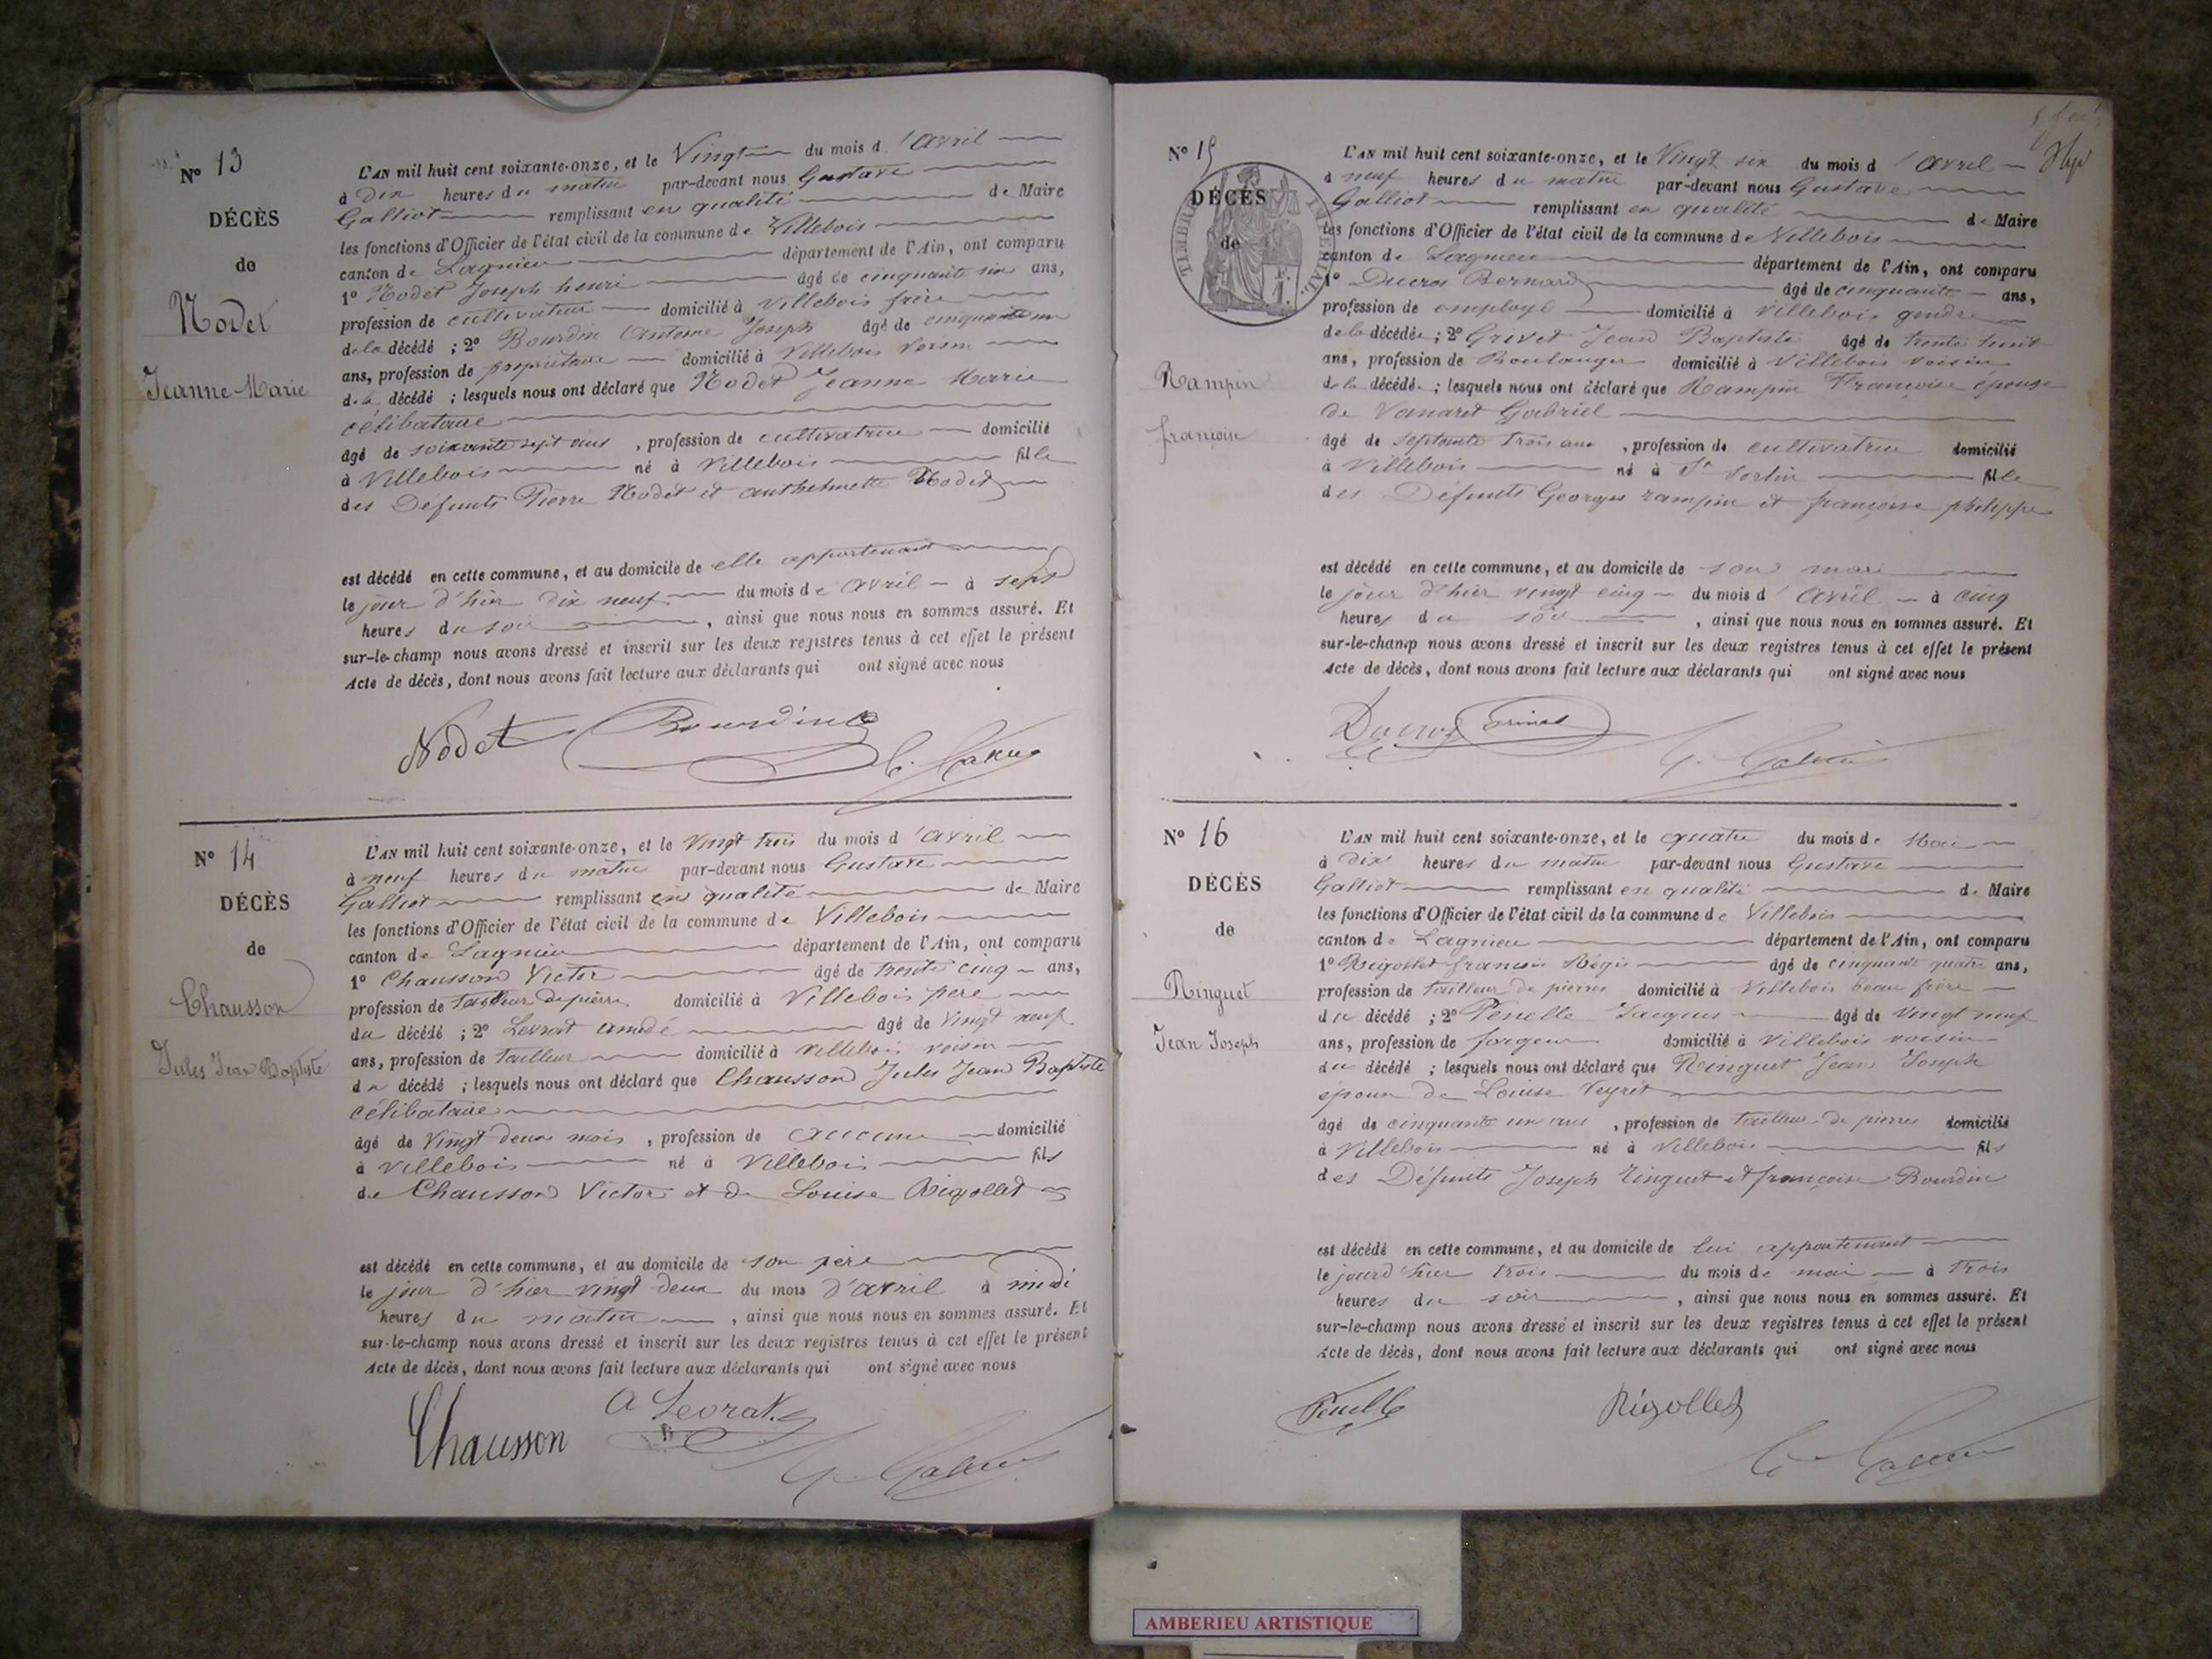 N° 13
DÉCÈS
de
Nodet
Jeanne-Marie
L'AN mil huit cent soixante-onze, et le Vingt du mois d'Avril
à Dix heures du matin par-devant nous Gustave
Galliot remplissant en qualité de Maire
les fonctions d'Officier de l'état civil de la commune de Villebois
canton de Lagnieu département de l'Ain, ont comparu
1° Nodet Joseph henri âgé de cinquante six ans,
profession de cultivateur domicilié à Villebois frère
de la décédé ; 2° Bourdin Antoine Joseph âgé de cinquante un
ans, profession de propriétaire domicilié à Villebois Voisin
de la décédé ; lesquels nous ont déclaré que Nodet Jeanne Marie
célibataire
âgé de soixante sept ans , profession de cultivatrice domicilié
à Villebois né à Villebois fille
des Défunts Pierre Nodet et anthelmette Nodet
est décédé en cette commune, et au domicile de elle appartenant
le jour d'hier dix neuf du mois de Avril à sept
heures du soir , ainsi que nous nous en sommes assuré. Et
sur-le-champ nous avons dressé et inscrit sur les deux registres tenus à cet effet le présent
Acte de décès, dont nous avons fait lecture aux déclarants qui ont signé avec nous
Nodet Bourdin
N° 14
DÉCÈS
de
Chausson
Jules Jean Baptiste
L'AN mil huit cent soixante-onze, et le Vingt trois du mois d'Avril
à neuf heures du matin par-devant nous Gustave
Galliot remplissant en qualité de Maire
les fonctions d'Officier de l'état civil de la commune de Villebois
canton de Lagnieu département de l'Ain, ont comparu
1° Chausson Victor âgé de trente cinq ans,
profession de tailleur de pierre domicilié à Villebois père
du décédé ; 2° Levrat amédé âgé de Vingt neuf
ans, profession de tailleur domicilié à Villebois voisin
du décédé ; lesquels nous ont déclaré que Chausson Jules Jean Baptiste
célibataire
âgé de Vingt deux mois , profession de aucune domicilié
à Villebois né à Villebois fils
de Chausson Victor et de Louise Rigollet
est décédé en cette commune, et au domicile de son père
le jour d'hier vingt deux du mois d'avril à midi
heures du matin , ainsi que nous nous en sommes assuré. Et
sur-le-champ nous avons dressé et inscrit sur les deux registres tenus à cet effet le présent
Acte de décès, dont nous avons fait lecture aux déclarants qui ont signé avec nous
Chausson A Levrat
N° 15
DÉCÈS
de
TIMBRE IMPERIAL
Rampin
françoise
L'AN mil huit cent soixante-onze, et le Vingt six du mois d'avril
à neuf heures du matin par-devant nous Gustave
Galliot remplissant en qualité de Maire
les fonctions d'Officier de l'état civil de la commune de Villebois
canton de Lagnieu département de l'Ain, ont comparu
1° Ducros Bernard âgé de cinquante ans,
profession de employé domicilié à Villebois gendre
de la décédée ; 2° Grivet Jean Baptiste âgé de trente huit
ans, profession de Boulanger domicilié à Villebois voisin
de la décédée ; lesquels nous ont déclaré que Rampin Françoise épouse
de Vanaret Gabriel
âgé de septante trois ans , profession de cultivatrice domicilié
à Villebois né à St Sorlin fille
des Défunts Georges rampin et françoise philippe
est décédé en cette commune, et au domicile de son mari
le jour d'hier vingt cinq du mois d'Avril à cinq
heures du soir , ainsi que nous nous en sommes assuré. Et
sur-le-champ nous avons dressé et inscrit sur les deux registres tenus à cet effet le présent
Acte de décès, dont nous avons fait lecture aux déclarants qui ont signé avec nous
Ducros
N° 16
DÉCÈS
de
Ringuet
Jean Joseph
L'AN mil huit cent soixante-onze, et le quatre du mois de Mai
à dix heures du matin par-devant nous Gustave
Galliot remplissant en qualité de Maire
les fonctions d'Officier de l'état civil de la commune de Villebois
canton de Lagnieu département de l'Ain, ont comparu
1° Rigollet francois Régis âgé de cinquante quatre ans,
profession de tailleur de pierres domicilié à Villebois beau frère
du décédé ; 2° Penelle Jacques âgé de vingt neuf
ans, profession de forgeur domicilié à Villebois voisin
du décédé ; lesquels nous ont déclaré que Ringuet Jean Joseph
époux de Louise Veyret
âgé de cinquante un ans , profession de tailleur de pierres domicilié
à Villebois né à Villebois fils
des Défunts Joseph ringuet et françoise Bourdin
est décédé en cette commune, et au domicile de lui appartenant
le jour d'hier trois du mois de mai à trois
heures du soir , ainsi que nous nous en sommes assuré. Et
sur-le-champ nous avons dressé et inscrit sur les deux registres tenus à cet effet le présent
Acte de décès, dont nous avons fait lecture aux déclarants qui ont signé avec nous
Penelle Rigollet
AMBERIEU ARTISTIQUE